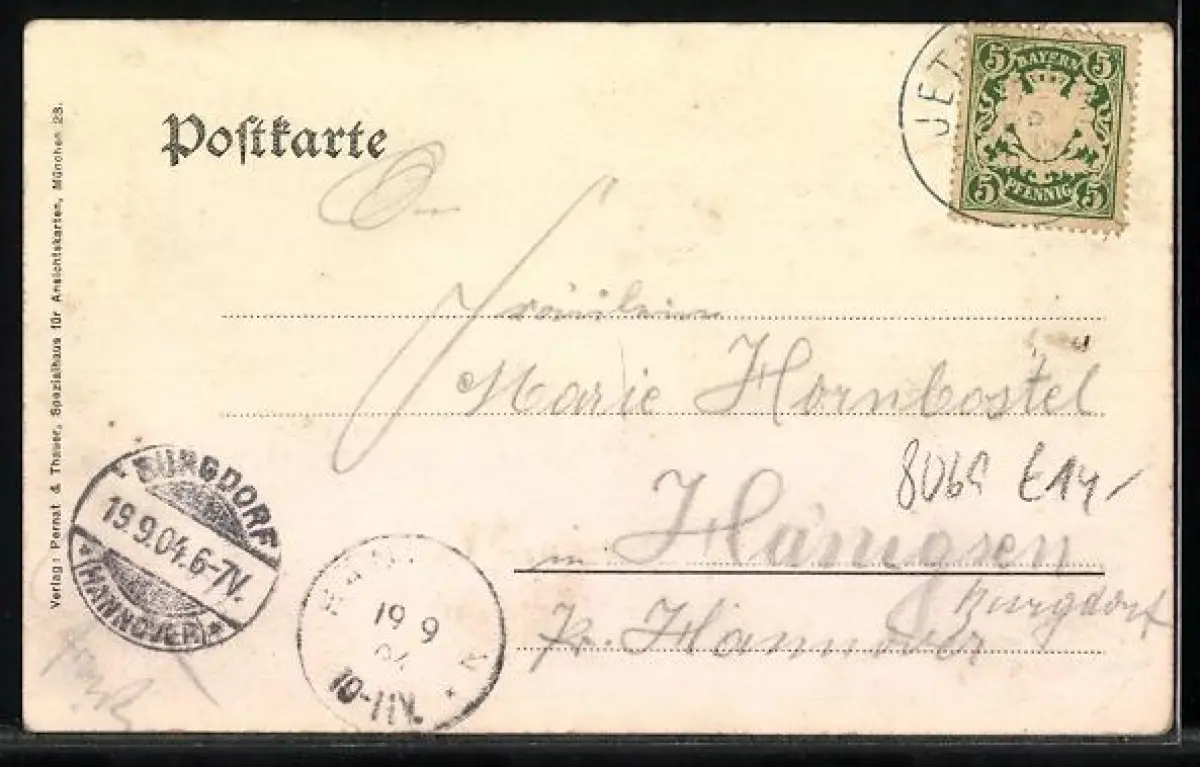 Postkarte
5 BAYERN 5
5 PFENNIG 5
JET
Fräulein
Marie Hornbostel
in Hänigsen
Burgdorf
Pr. Hannover
8065 £14,-
BURGDORF
19.9.04.6-7V.
(HANNOVER)
19 9
04
10-11V.
Verlag: Pernat & Thauer, Spezialhaus für Ansichtskarten, München 23.